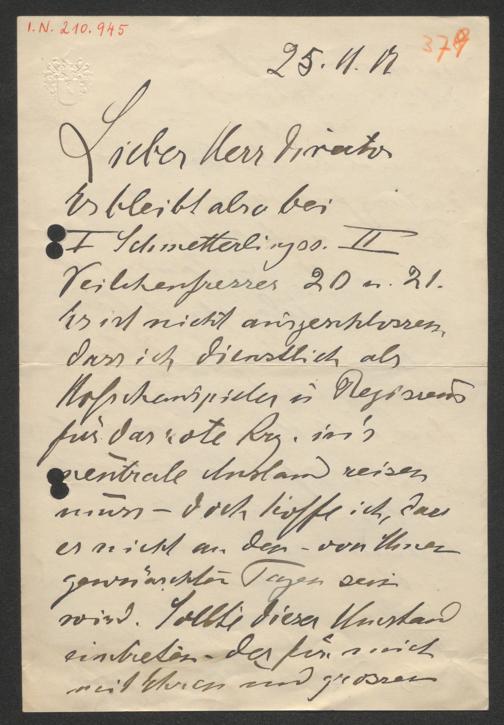 I.N. 210.945
379
25.11.17
Lieber Herr Director
Es bleibt also bei
I Schmetterlingss. II
Veilchenfresser 20 u. 21.
Es ist nicht ausgeschlossen,
dass ich dienstlich als
Hofschauspieler u Regisseur
für das rote Krz. in's
neutrale Ausland reisen
muss – doch hoffe ich, dass
es nicht an den – von Ihnen
gewünschten Tagen sein
wird. Sollte dieser Umstand
eintreten – der für mich
mit Ehren und grossen